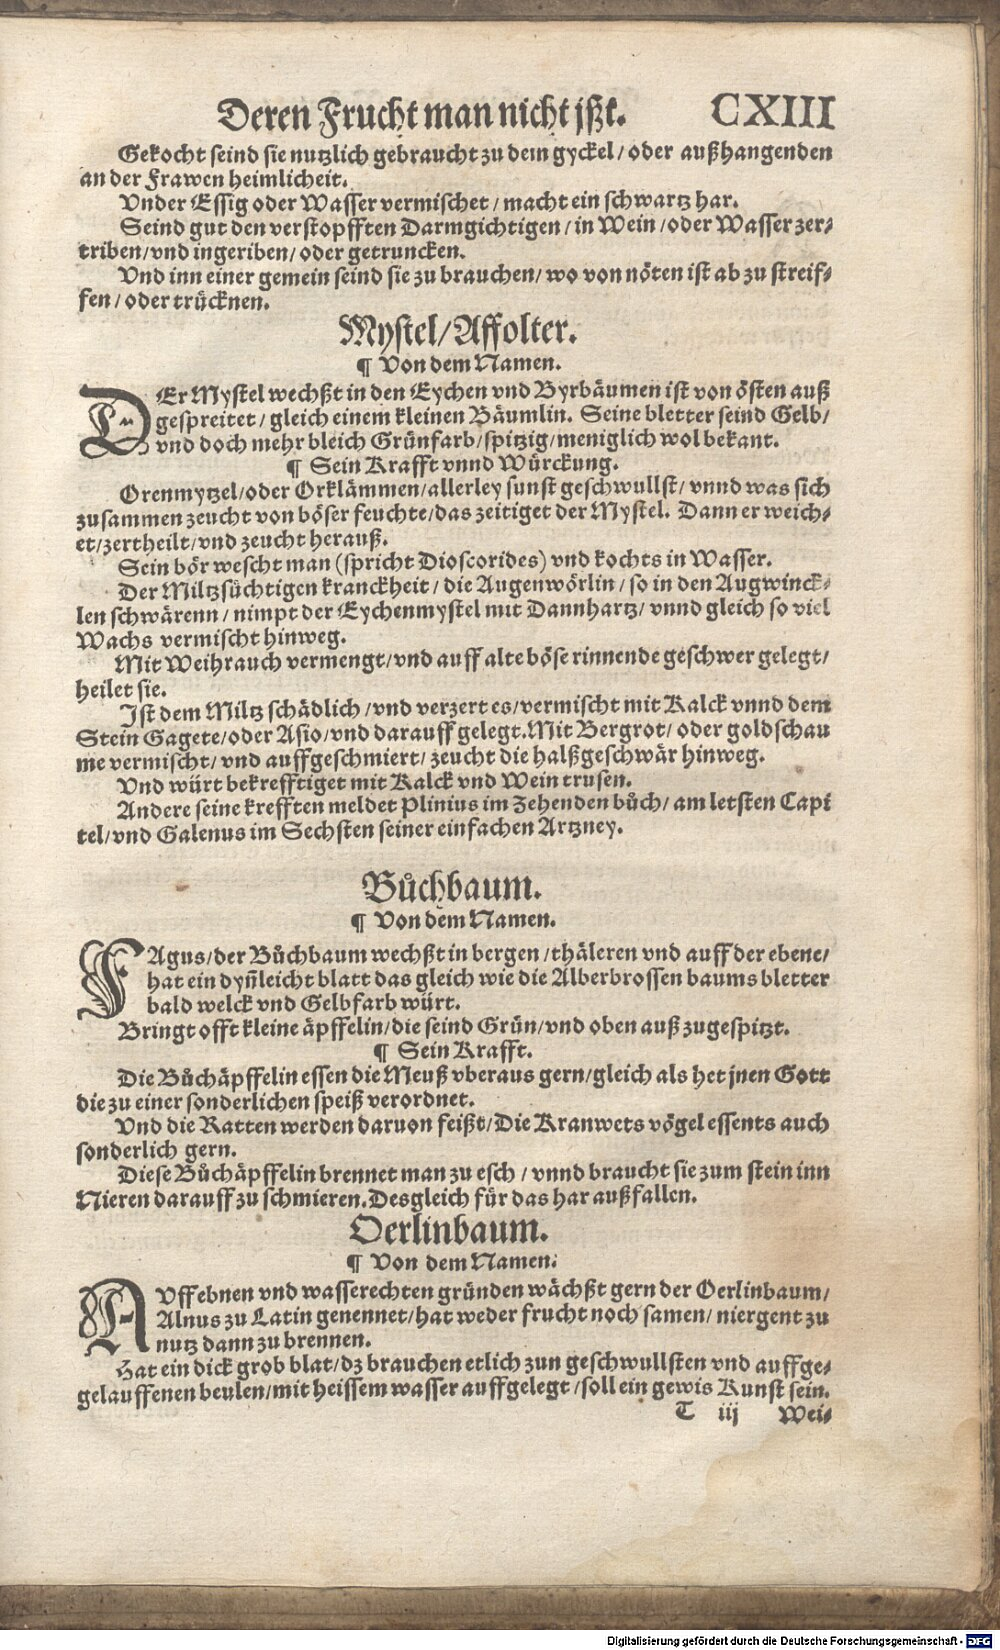 Deren Frucht man nicht jßt. CXIII
Gekocht seind sie nutzlich gebraucht zu dem gyckel / oder außhangenden
an der Frawen heimlicheit.
Vnder Essig oder Wasser vermischet / macht ein schwartz har.
Seind gut den verstopfften Darmgichtigen / in Wein / oder Wasser zer⸗
triben / vnd ingeriben / oder getruncken.
Vnd inn einer gemein seind sie zu brauchen / wo von nöten ist ab zu streif⸗
fen / oder trücknen.
Mystel / Affolter.
¶ Von dem Namen.
DEr Mystel wechßt in den Eychen vnd Byrbäumen ist von östen auß
gespreitet / gleich einem kleinen Bäumlin. Seine bletter seind Gelb /
vnd doch mehr bleich Grünfarb / spitzig / meniglich wol bekant.
¶ Sein Krafft vnnd Würckung.
Orenmytzel / oder Orklämmen / allerley sunst geschwullst / vnnd was sich
zusammen zeucht von böser feuchte / das zeitiget der Mystel. Dann er weich⸗
et / zertheilt / vnd zeucht herauß.
Sein bör wescht man (spricht Dioscorides) vnd kochts in Wasser.
Der Miltzsüchtigen kranckheit / die Augenwörlin / so in den Augwinck⸗
len schwärenn / nimpt der Eychenmystel mit Dannhartz / vnnd gleich so viel
Wachs vermischt hinweg.
Mit Weihrauch vermengt / vnd auff alte böse rinnende geschwer gelegt /
heilet sie.
Ist dem Miltz schädlich / vnd verzert es / vermischt mit Kalck vnnd dem
Stein Gagete / oder Asio / vnd darauff gelegt. Mit Bergrot / oder goldschau
me vermischt / vnd auffgeschmiert / zeucht die halßgeschwär hinweg.
Vnd würt bekrefftiget mit Kalck vnd Wein trusen.
Andere seine krefften meldet Plinius im Zehenden bůch / am letsten Capi
tel / vnd Galenus im Sechsten seiner einfachen Artzney.
Bůchbaum.
¶ Von dem Namen.
FAgus / der Bůchbaum wechßt in bergen / thäleren vnd auff der ebene /
hat ein dyñ leicht blatt das gleich wie die Alberbrossen baums bletter
bald welck vnd Gelbfarb würt.
Bringt offt kleine äpffelin / die seind Grün / vnd oben auß zugespitzt.
¶ Sein Krafft.
Die Bůchäpffelin essen die Meuß vberaus gern / gleich als het jnen Gott
die zu einer sonderlichen speiß verordnet.
Vnd die Ratten werden daruon feißt / Die Kranwets vögel essents auch
sonderlich gern.
Diese Bůchäpffelin brennet man zu esch / vnnd braucht sie zum stein inn
Nieren darauff zu schmieren. Desgleich für das har außfallen.
Oerlinbaum.
¶ Von dem Namen.
AVff ebnen vnd wasserechten gründen wächßt gern der Oerlinbaum /
Alnus zu Latin genennet / hat weder frucht noch samen / niergent zu
nutz dann zu brennen.
Hat ein dick grob blat / dz brauchen etlich zun geschwullsten vnd auffge⸗
gelauffenen beulen / mit heissem wasser auffgelegt / soll ein gewis Kunst sein.
T iij Wei⸗
Digitalisierung gefördert durch die Deutsche Forschungsgemeinschaft - DFG